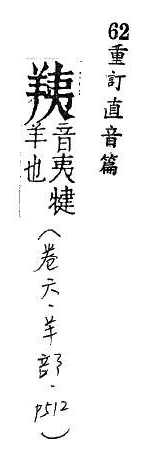 62重訂直音篇
羠
音夷犍
羊也
(卷六·羊部·P512)